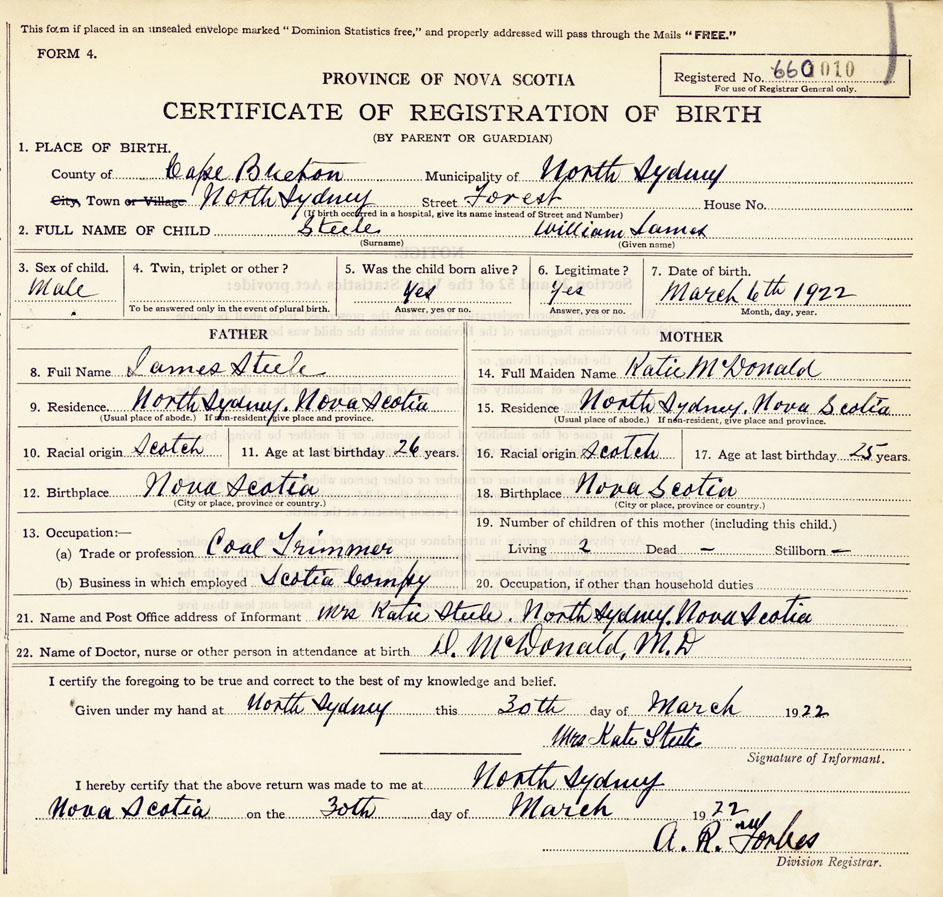 This form if placed in an unsealed envelope marked "Dominion Statistics free," and properly addressed will pass through the Mails "FREE."
FORM 4.
Registered No. 660 1010
For use of Registrar General only.
PROVINCE OF NOVA SCOTIA
CERTIFICATE OF REGISTRATION OF BIRTH
(BY PARENT OR GUARDIAN)
1. PLACE OF BIRTH.
County of Cape Breton Municipality of North Sydney
City, Town or Village North Sydney Street Forest House No.
(If birth occurred in a hospital, give its name instead of Street and Number)
2. FULL NAME OF CHILD Steele William James
(Surname) (Given name)
3. Sex of child. 4. Twin, triplet or other? 5. Was the child born alive? 6. Legitimate? 7. Date of birth.
Male Yes Yes March 6th 1922
To be answered only in the event of plural birth. Answer, yes or no. Answer, yes or no. Month, day, year.
FATHER MOTHER
8. Full Name James Steele 14. Full Maiden Name Katie McDonald
9. Residence. North Sydney. Nova Scotia 15. Residence North Sydney. Nova Scotia
(Usual place of abode.) If non-resident, give place and province. (Usual place of abode.) If non-resident, give place and province.
10. Racial origin Scotch 11. Age at last birthday 26 years. 16. Racial origin Scotch 17. Age at last birthday 25 years.
12. Birthplace Nova Scotia 18. Birthplace Nova Scotia
(City or place, province or country.) (City or place, province or country.)
13. Occupation:— 19. Number of children of this mother (including this child.)
(a) Trade or profession Coal Trimmer Living 2 Dead – Stillborn –
(b) Business in which employed Scotia Compy 20. Occupation, if other than household duties
21. Name and Post Office address of Informant Mrs Katie Steele. North Sydney. Nova Scotia
22. Name of Doctor, nurse or other person in attendance at birth D. McDonald, M.D
I certify the foregoing to be true and correct to the best of my knowledge and belief.
Given under my hand at North Sydney this 30th day of March 1922
Mrs Katie Steele
Signature of Informant.
I hereby certify that the above return was made to me at North Sydney
Nova Scotia on the 30th day of March 1922
A. R. Forbes
Division Registrar.